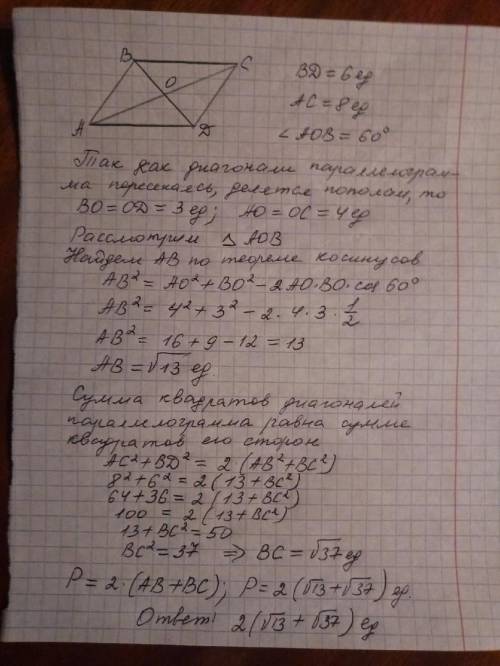 B
C
O
A
D
BD = 6 ед
AC = 8 ед
∠AOB = 60°
Так как диагонали параллелограм-
ма пересекаясь, делятся пополам, то
BO = OD = 3 ед; AO = OC = 4 ед
Рассмотрим △ AOB
Найдем AB по теореме косинусов
AB² = AO² + BO² − 2AO·BO·cos 60°
AB² = 4² + 3² − 2·4·3·1/2
AB² = 16 + 9 − 12 = 13
AB = √13 ед.
Сумма квадратов диагоналей
параллелограмма равна сумме
квадратов его сторон
AC² + BD² = 2 (AB² + BC²)
8² + 6² = 2 (13 + BC²)
64 + 36 = 2 (13 + BC²)
100 = 2 (13 + BC²)
13 + BC² = 50
BC² = 37 ⇒ BC = √37 ед
P = 2·(AB + BC); P = 2(√13 + √37) ед.
Ответ: 2(√13 + √37) ед